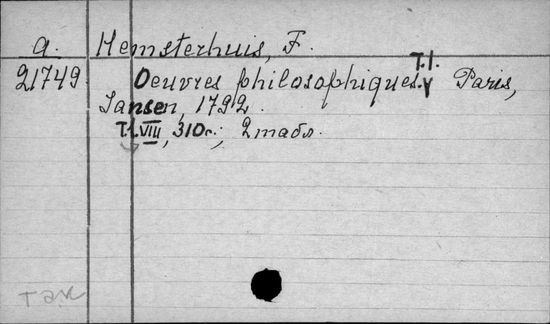 a. Hemsterhuis, F.
21749 Oeuvres philosophiques. T.1. Paris,
Jansen, 1792.
T.1. VIII, 310 с.; 2 табл.